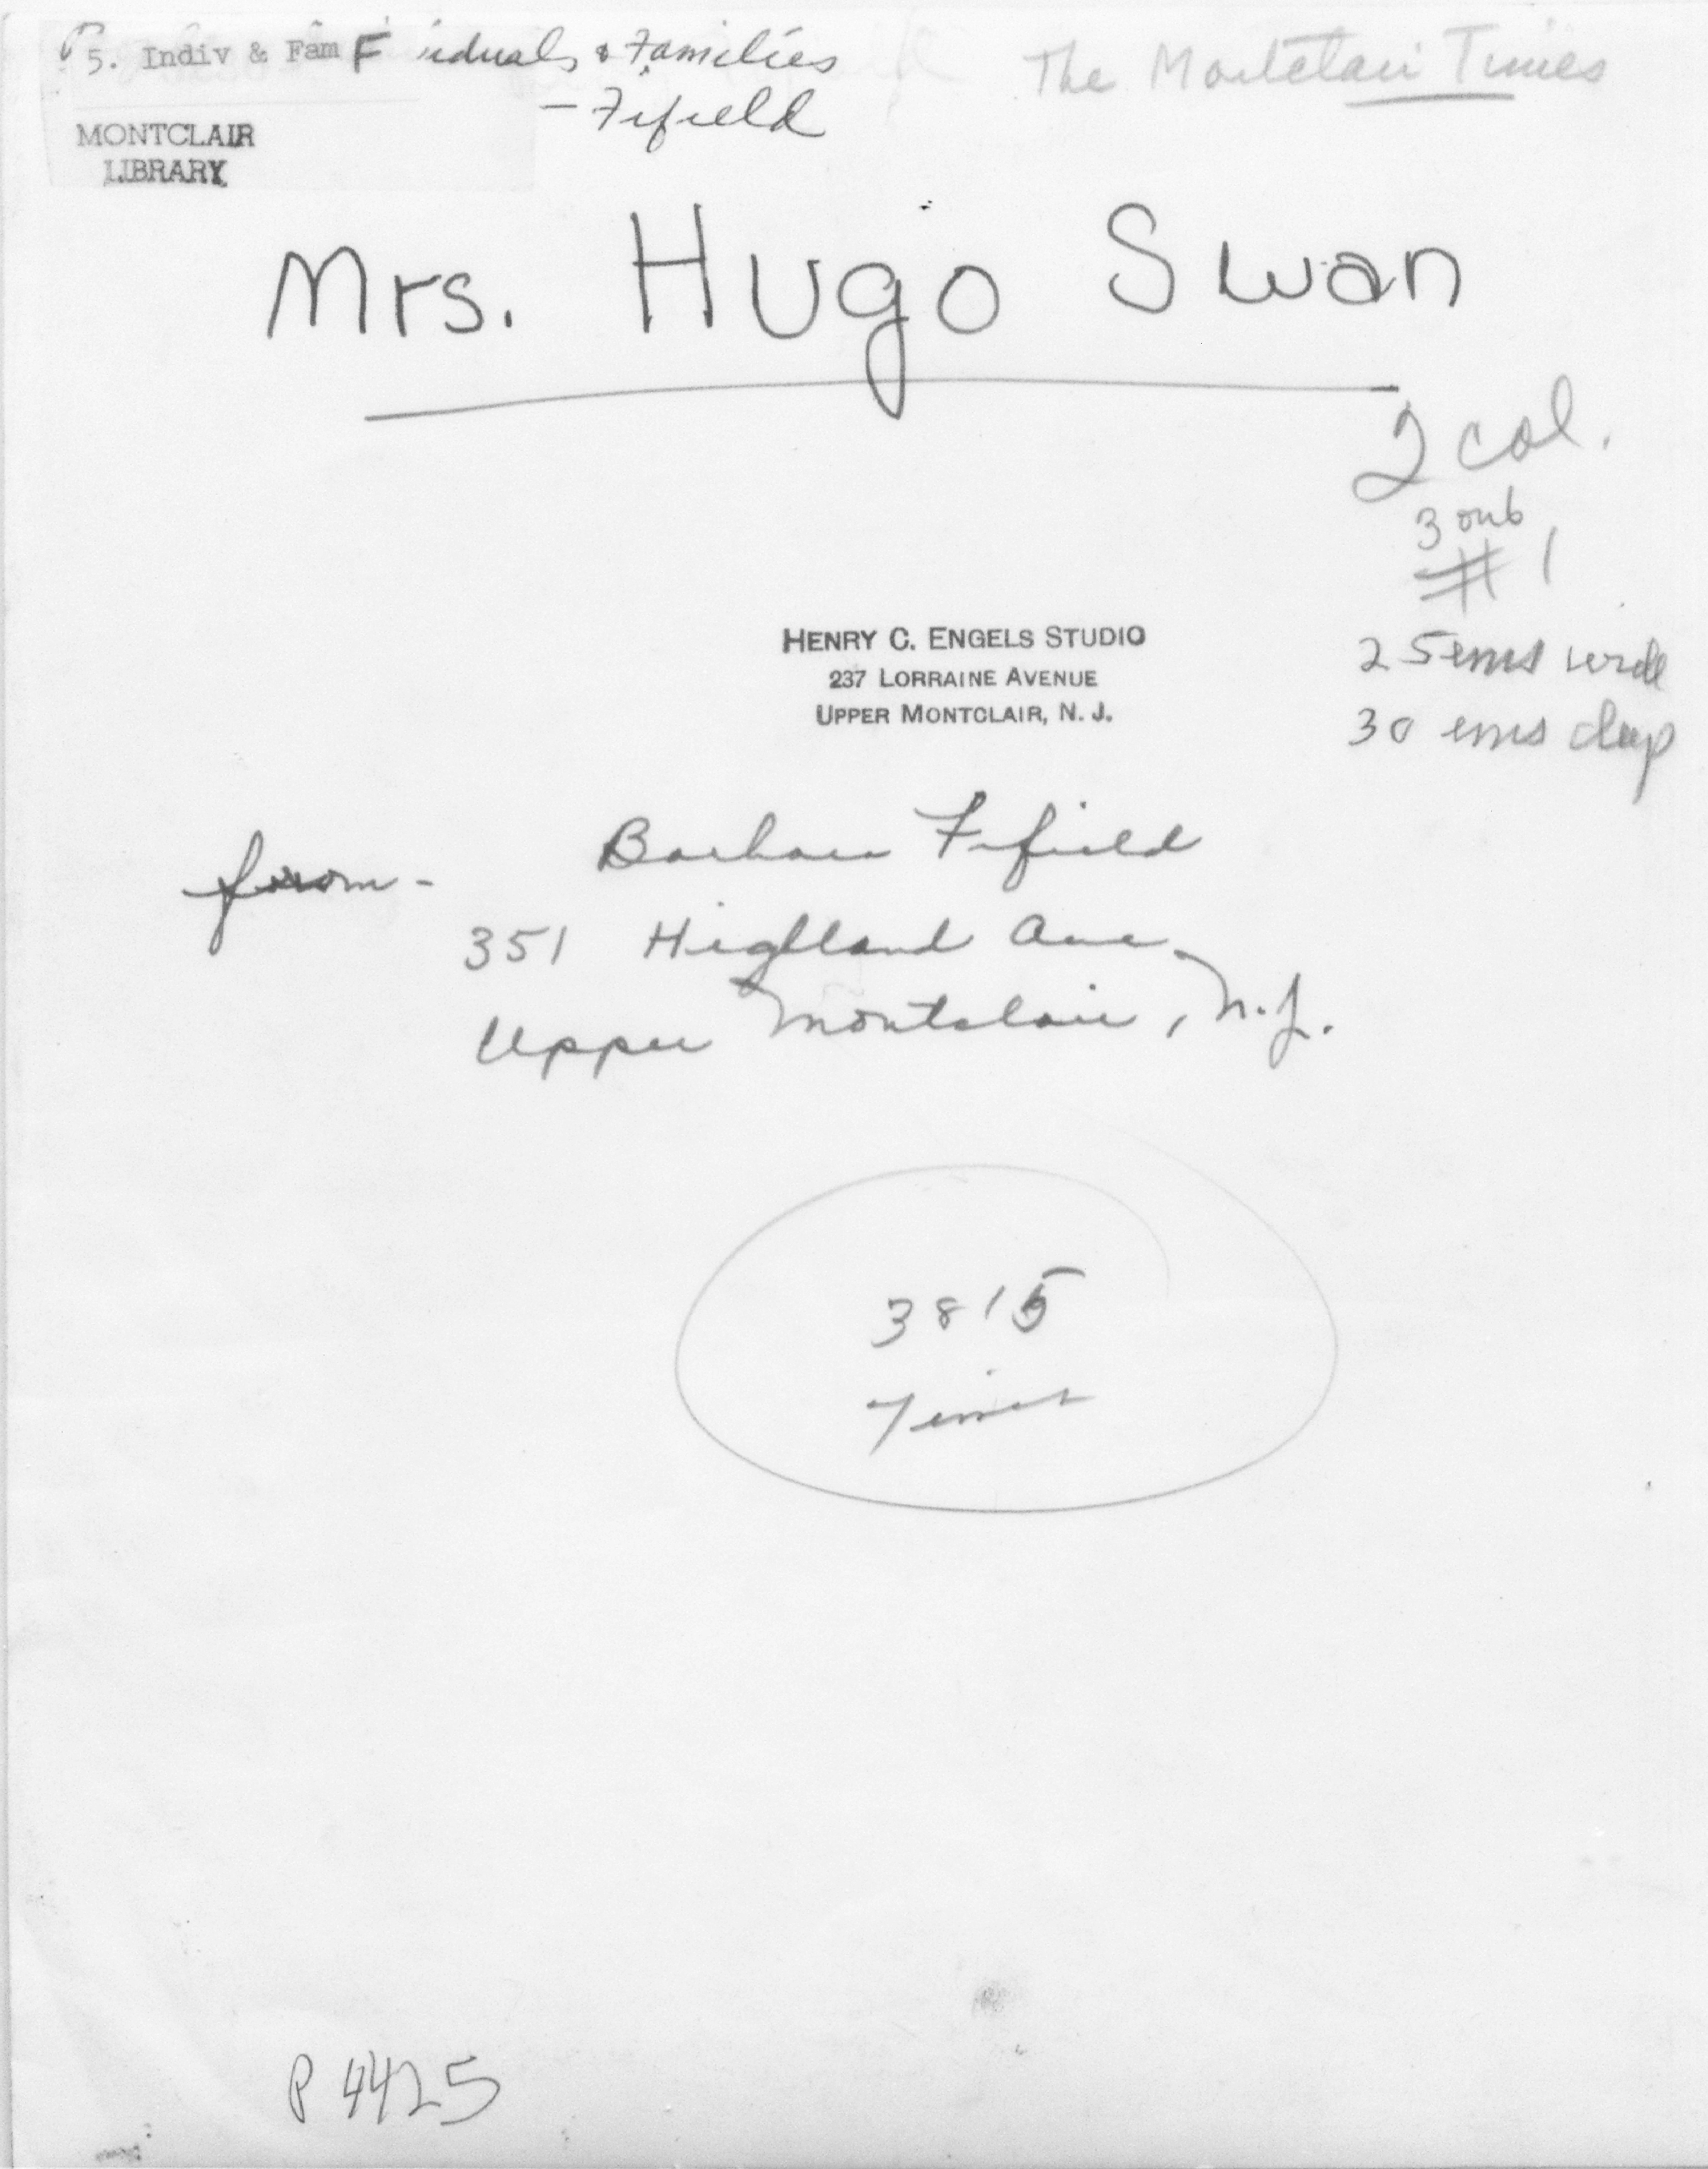 P5. Indiv & Fam F iduals & Families
- Fifield
The Montclair Times
MONTCLAIR
LIBRARY
Mrs. Hugo Swan
2 col.
#1
25 ems wide
30 ems deep
HENRY C. ENGELS STUDIO
237 LORRAINE AVENUE
UPPER MONTCLAIR, N. J.
from - Barbara Fifield
351 Highland Ave.
Upper Montclair, N.J.
3815
Times
P4425